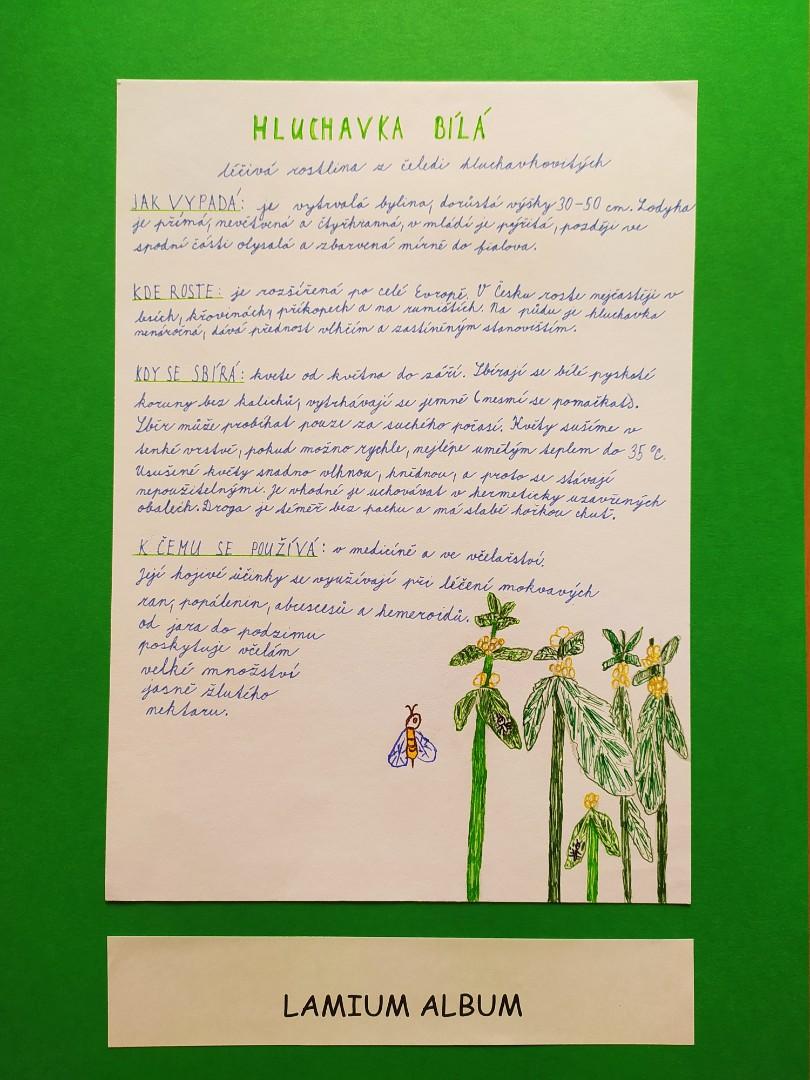 HLUCHAVKA BÍLÁ
léčivá rostlina z čeledi hluchavkovitých
JAK VYPADÁ: je vytrvalá bylina, dorůstá výšky 30-50 cm. Lodyha
je přímá, nevětvená a čtyřhranná, v mládí je pýřitá, později ve
spodní části olysalá a zbarvená mírně do fialova.
KDE ROSTE: je rozšířená po celé Evropě. V Česku roste nejčastěji v
lesích, křovinách, příkopech a na rumištích. Na půdu je hluchavka
nenáročná, dává přednost vlhčím a zastíněným stanovištím.
KDY SE SBÍRÁ: kvete od května do září. Sbírají se bílé pyskaté
koruny bez kalichů, vytrhávají se jemně (nesmí se pomačkat).
Sběr může probíhat pouze za suchého počasí. Květy sušíme v
tenké vrstvě, pokud možno rychle, nejlépe umělým teplem do 35 °C.
Usušené květy snadno vlhnou, hnědnou, a proto se stávají
nepoužitelnými. Je vhodné je uchovávat v hermeticky uzavřených
obalech. Droga je téměř bez pachu a má slabě hořkou chuť.
K ČEMU SE POUŽÍVÁ: v medicíně a ve včelařství.
Její hojivé účinky se využívají při léčení mokvavých
ran, popálenin, abscesů a hemeroidů.
od jara do podzimu
poskytuje včelám
velké množství
jasně žlutého
nektaru.
LAMIUM ALBUM